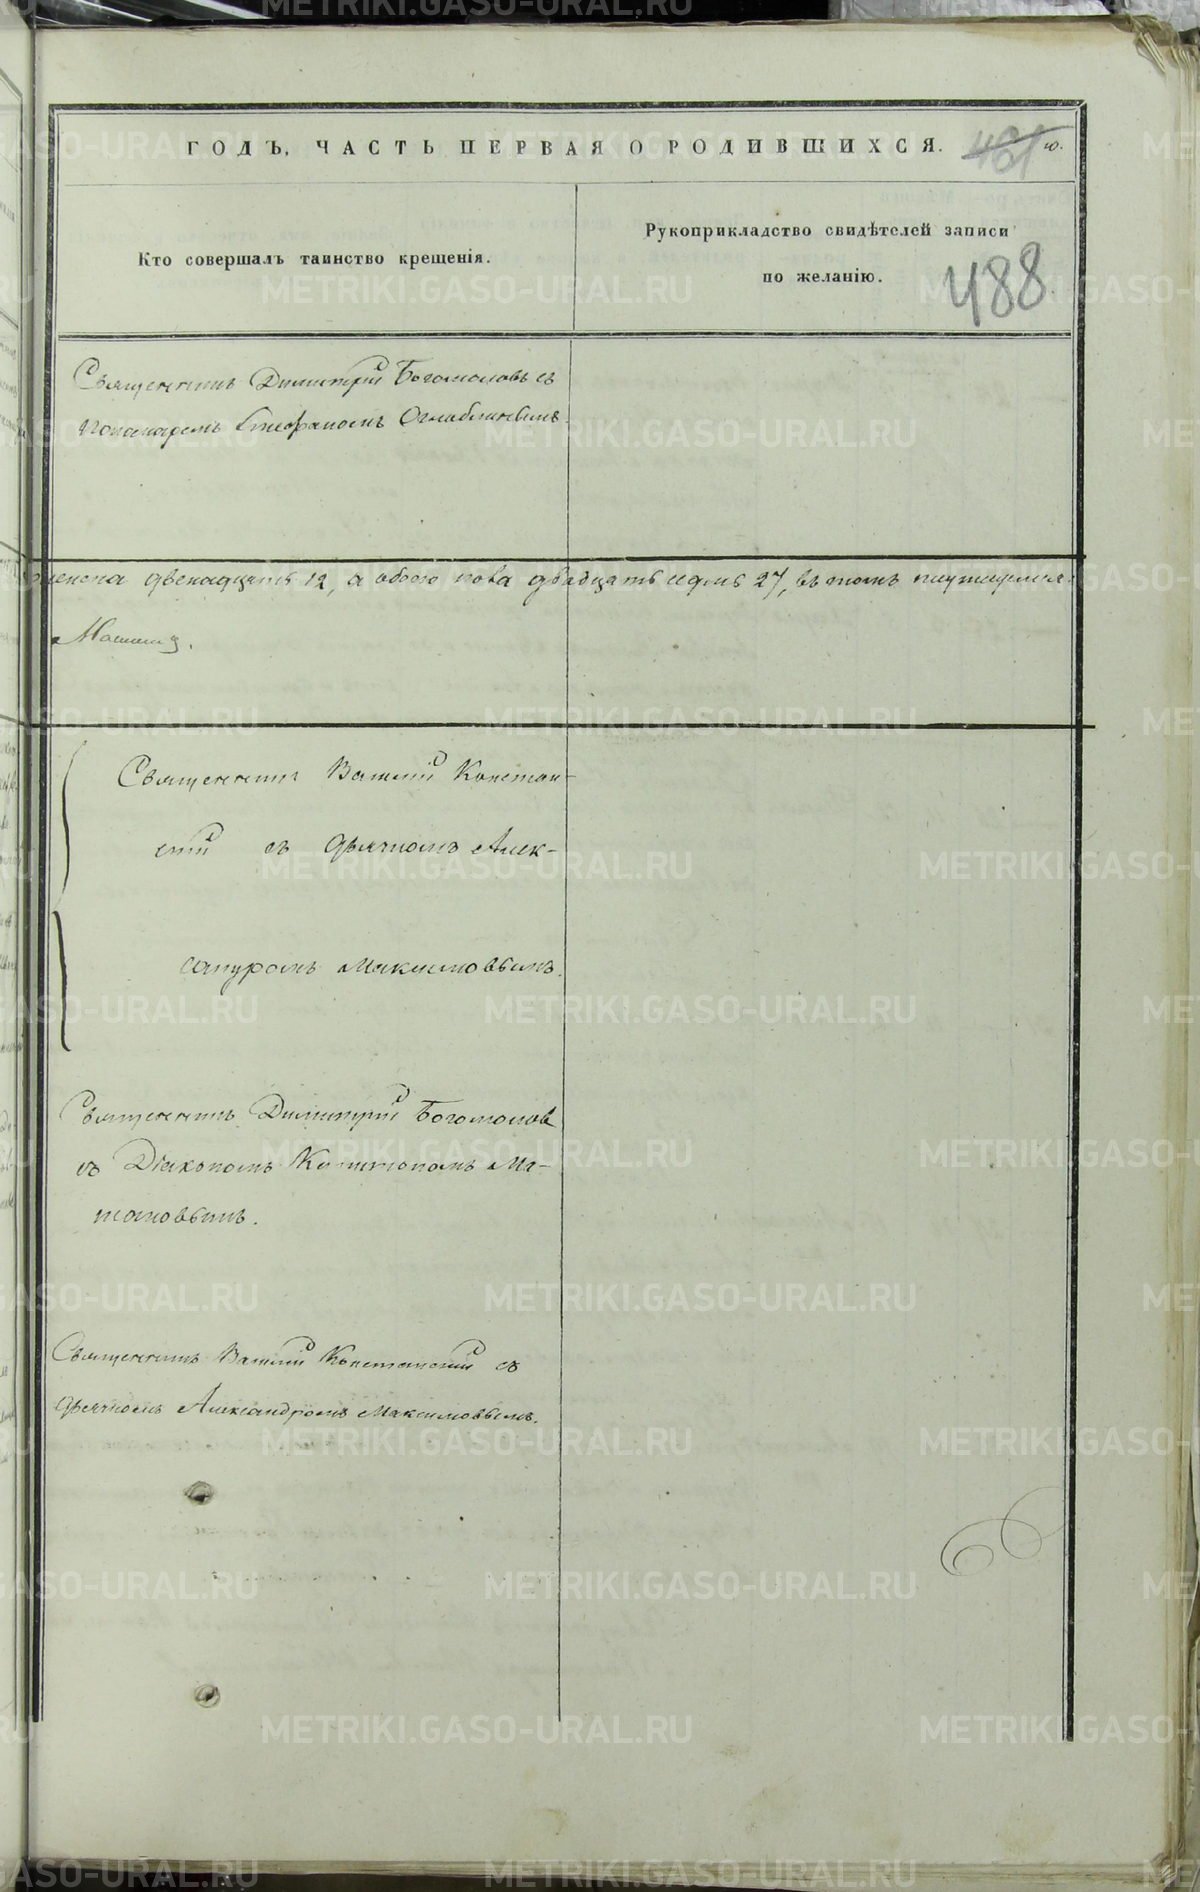 ГОДЪ, ЧАСТЬ ПЕРВАЯ О РОДИВШИХСЯ.
Кто совершалъ таинство крещенія.
Рукоприкладство свидѣтелей записи
по желанію.
488
Священникъ Димитрій Богомоловъ съ
понамаремъ Стефаномъ Оглаблинымъ.
женска двенадцать 12, а обоего пола двадцать седмь 27, въ томъ числе
Священникъ Василій Констан-
скій съ дьячкомъ Алек-
сандромъ Максимовымъ.
Священникъ Димитрій Богомолов
съ Діакономъ
Священникъ Василій Констанскій съ
дьячкомъ Александромъ Максимовымъ.
METRIKI.GASO-URAL.RU